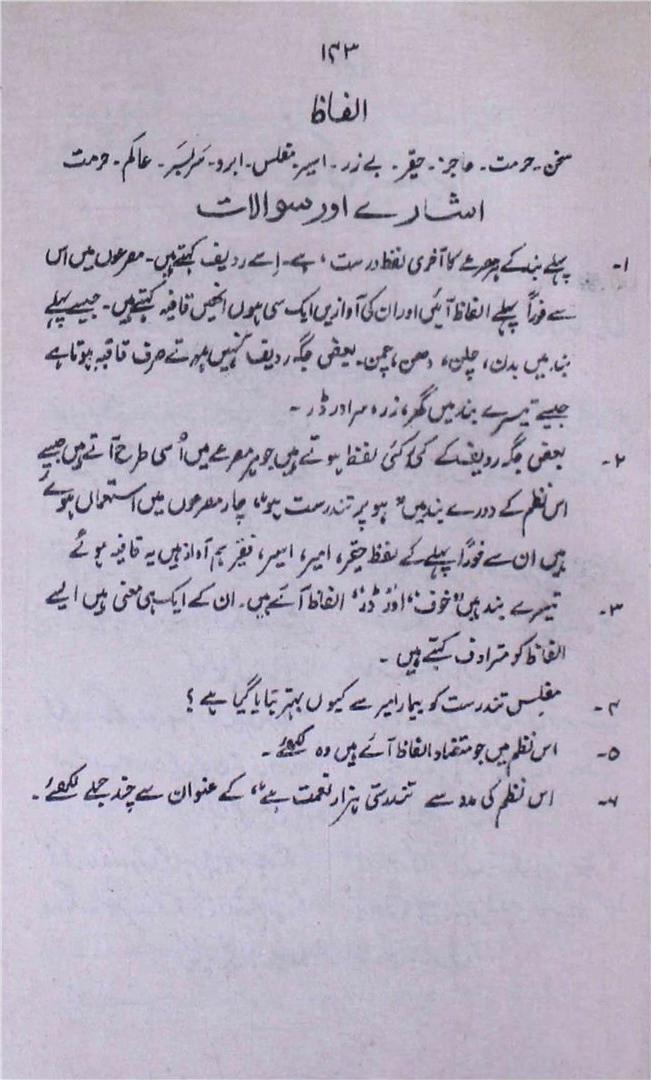 ۱۴۳
الفاظ
سخن - حرمت - عاجز - حقیر - بے زر - اسیر - مفلس - ابرو - سربسر - عالم - حرمت
اشارے اور سوالات
۱- پہلے بند کے ہر مصرعے کا آخری لفظ درست، ہے - اسے ردیف کہتے ہیں - مصرعوں میں اس
سے فوراً پہلے الفاظ آئیں اور ان کی آوازیں ایک سی ہوں انھیں قافیہ کہتے ہیں - جیسے پہلے
بند میں بدن، چلن، دھن، چمن - بعض جگہ ردیف نہیں ہوتے صرف قافیہ ہوتا ہے
جیسے تیسرے بند میں گھر، زر، سر اور ڈر -
۲- بعض جگہ ردیف کے کئی کئی لفظ ہوتے ہیں جو ہر مصرعے میں اُسی طرح آتے ہیں جیسے
اس نظم کے دورے بند میں " ہو پر تندرست ہو"، چار مصرعوں میں استعمال ہوئے
ہیں ان سے فوراً پہلے کے لفظ حقیر، امیر، اسیر، فقیر ہم آواز ہیں یہ قافیہ ہوئے
۳- تیسرے بند میں "خوف" اور "ڈر" الفاظ آئے ہیں - ان کے ایک ہی معنی ہیں ایسے
الفاظ کو مترادف کہتے ہیں -
۴- مفلس تندرست کو بیمار امیر سے کیوں بہتر بتایا گیا ہے ؟
۵- اس نظم میں جو متضاد الفاظ آئے ہیں وہ لکھئے -
۶- اس نظم کی مدد سے تندرستی ہزار نعمت ہے"، کے عنوان سے چند جملے لکھئے -